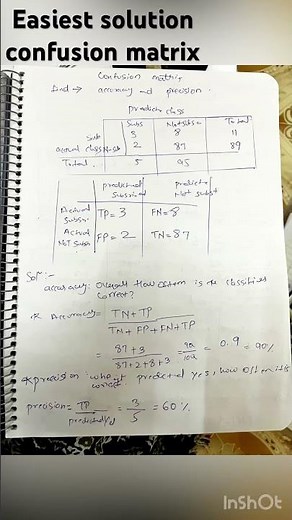 Easiest solution
confusion matrix
Confusion matrix
find → accuracy and precision.
predicte class
Subs Not subs Total
Sub 3 8 11
actual class 2 87 89
Total 5 95
predicted predicte
Subscribed Not subst
Actual Subsc. TP=3 FN=8
Actual Not Subs FP=2 TN=87
Sol:-
accuracy: Overall how often is the classifier
correct?
* Accuracy = TN+TP / TN+FP+FN+TP
= 87+3 / 87+2+8+3 = 90/100 = 0.9 = 90%
*precision predicted yes, how often it's
correct
precision = TP / predicted yes = 3/5 = 60%
InShOt